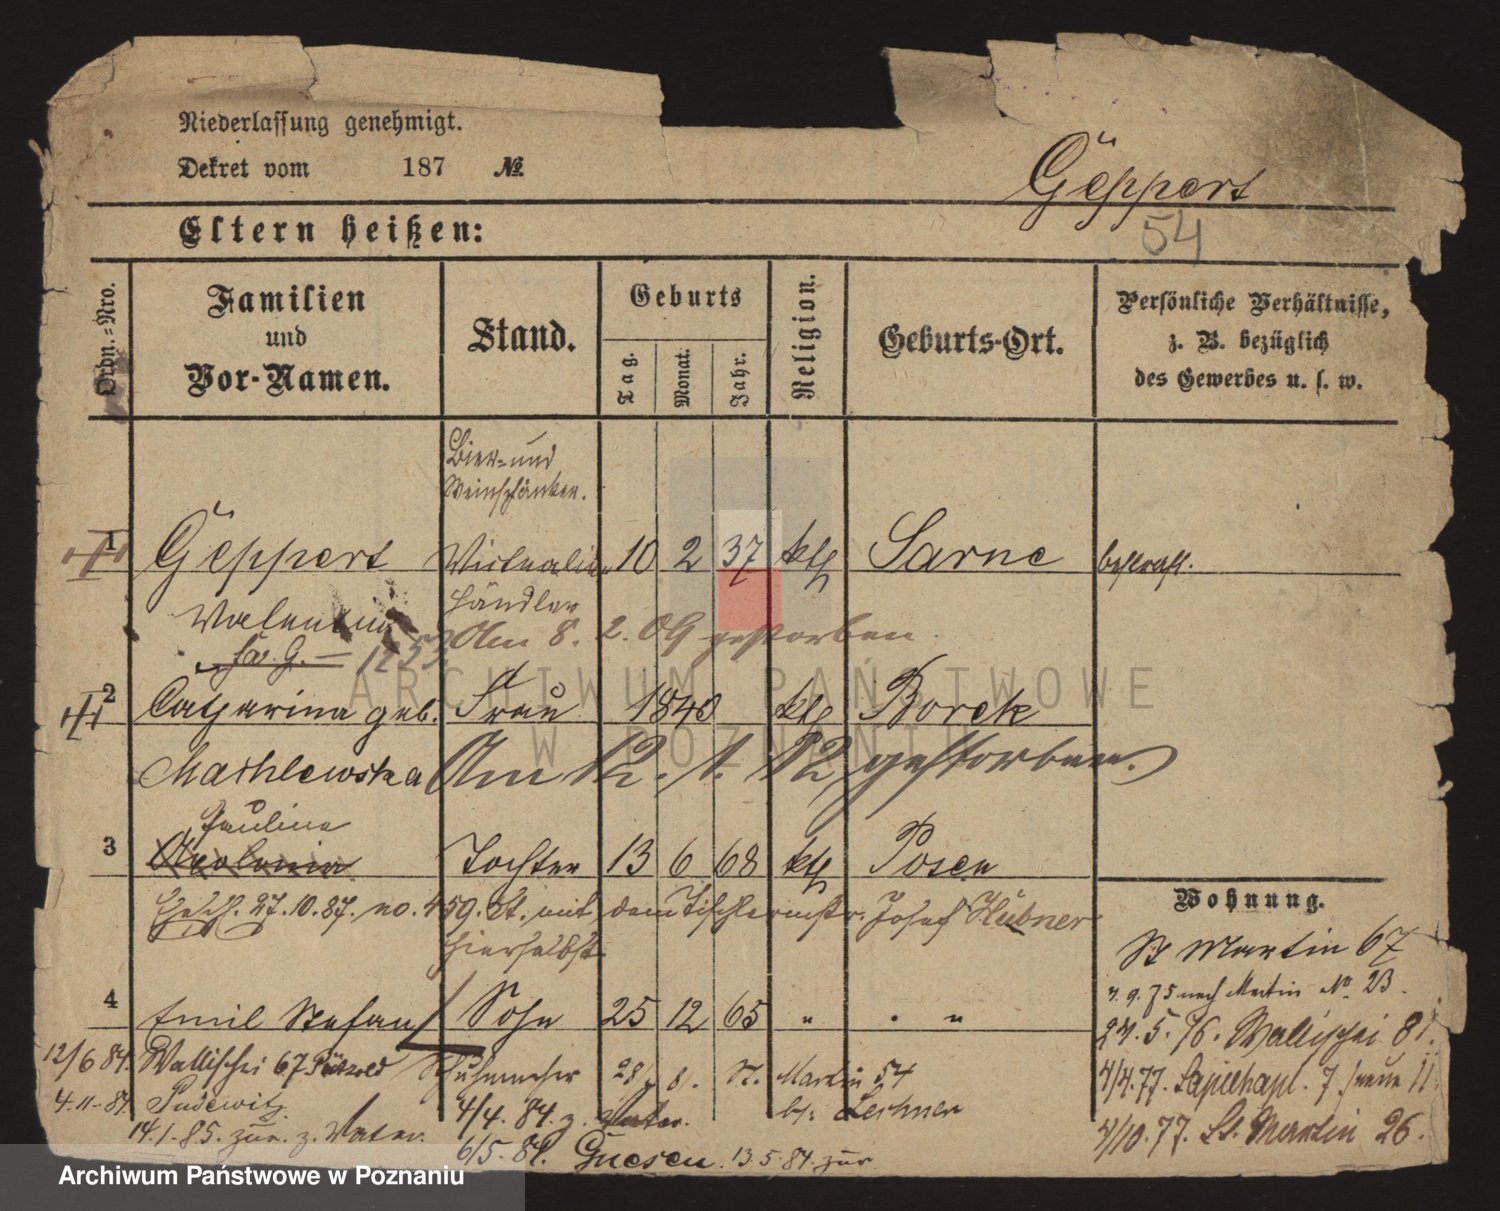 Niederlassung genehmigt.
Dekret vom 187 №
Geppert
54
Eltern heißen:
Ordn.-Nro.
Familien
und
Vor-Namen.
Stand.
Geburts
Tag.
Monat.
Jahr.
Religion.
Geburts-Ort.
Persönliche Verhältnisse,
z. B. bezüglich
des Gewerbes u. s. w.
Bier- und
Weinschänker.
1 Geppert Victualien 10 2 37 kth Sarne bestraft.
Valentin Händler
Am 8. 2. 09 gestorben.
2 Catharina geb. Frau 1840 kth Borek
Mathlewska Am 12. 1. 12 gestorben.
Pauline
3 Apolonia Tochter 13 6 68 kth Posen
Ehesch. 27.10.87. no. 459. St. mit dem Tischlermstr. Josef Hübner
hierselbst.
4 Emil Stefan Sohn 25 12 65 " " "
Wohnung.
St Martin 67
9. 75 nach Martin No 23.
24. 5. 76. Wallischei 81.
4/4. 77. Sapiehapl. 7 / neue 11.
4/10. 77. St. Martin 26.
12/6 84. Wallischei 67 Schuhmacher St. Martin 54
4.11.84. Pudewitz. 4/4. 84. z. Vater. Lechner
14.1.85. zur. z. Vater. 6/5. 84. Gnesen. 13.5.84. zur
ARCHIWUM PAŃSTWOWE
W POZNANIU
Archiwum Państwowe w Poznaniu